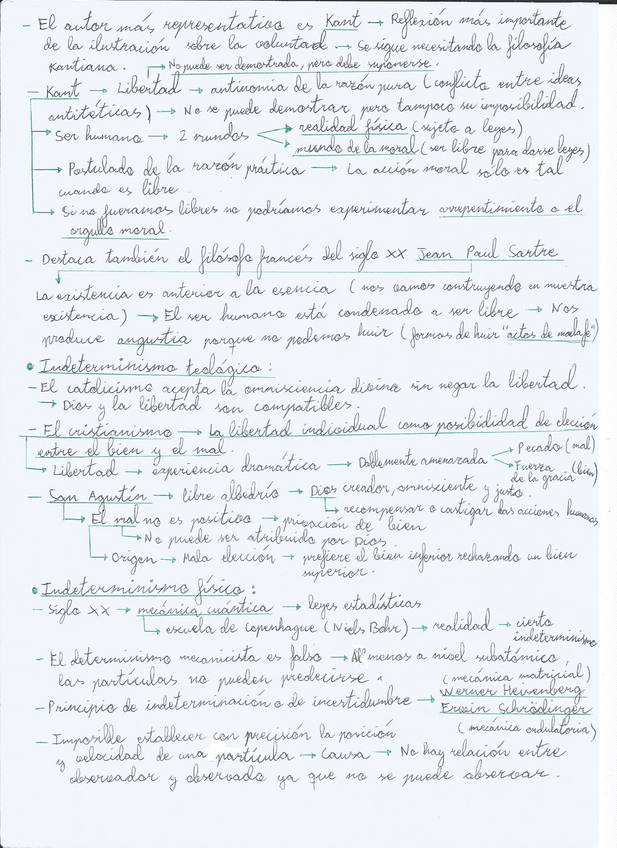 - El autor más representativo es Kant → Reflexión más importante
de la ilustración sobre la voluntad → Se sigue necesitando la filosofía
Kantiana.
→ No puede ser demostrada, pero debe suponerse.
- Kant → Libertad → antinomia de la razón pura (conflicto entre ideas
antitéticas) → No se puede demostrar pero tampoco su imposibilidad.
→ Ser humano → 2 mundos → realidad física (sujeto a leyes)
→ mundo de la moral (ser libre para darse leyes)
→ Postulado de la razón práctica → La acción moral sólo es tal
cuando es libre
→ Si no fueramos libres no podríamos experimentar arrepentimiento o el
orgullo moral.
- Destaca también el filósofo francés del siglo XX Jean Paul Sartre
La existencia es anterior a la esencia (nos vamos construyendo en nuestra
existencia) → El ser humano está condenado a ser libre → Nos
produce angustia porque no podemos huir (formas de huir "actos de mala fe")
• Indeterminismo teológico:
- El catolicismo acepta la omnisciencia divina sin negar la libertad.
→ Dios y la libertad son compatibles.
- El cristianismo → La libertad individual como posibididad de elección
entre el bien y el mal.
→ Libertad → experiencia dramática → Doblemente amenazada → Pecado (mal)
→ Fuerza de la gracia (bien)
- San Agustín → libre albedrío → Dios creador, omnisciente y justo.
→ recompensar o castigar las acciones humanas
→ El mal no es positivo → privación de bien
→ No puede ser atribuido por Dios.
→ Origen → Mala elección → prefiere el bien inferior rechazando un bien
superior.
• Indeterminismo físico:
- Siglo XX → mecánica cuántica → leyes estadísticas
→ escuela de Copenhague (Niels Bohr) → realidad → cierto
indeterminismo
- El determinismo mecanicista es falso → Al menos a nivel subatómico,
las partículas no pueden predecirse.
(mecánica matricial)
- Principio de indeterminación o de incertidumbre → Werner Heisenberg
Erwin Schrödinger
(mecánica ondulatoria)
- Imposible establecer con precisión la posición
y velocidad de una partícula → Causa → No hay relación entre
observador y observado ya que no se puede observar.